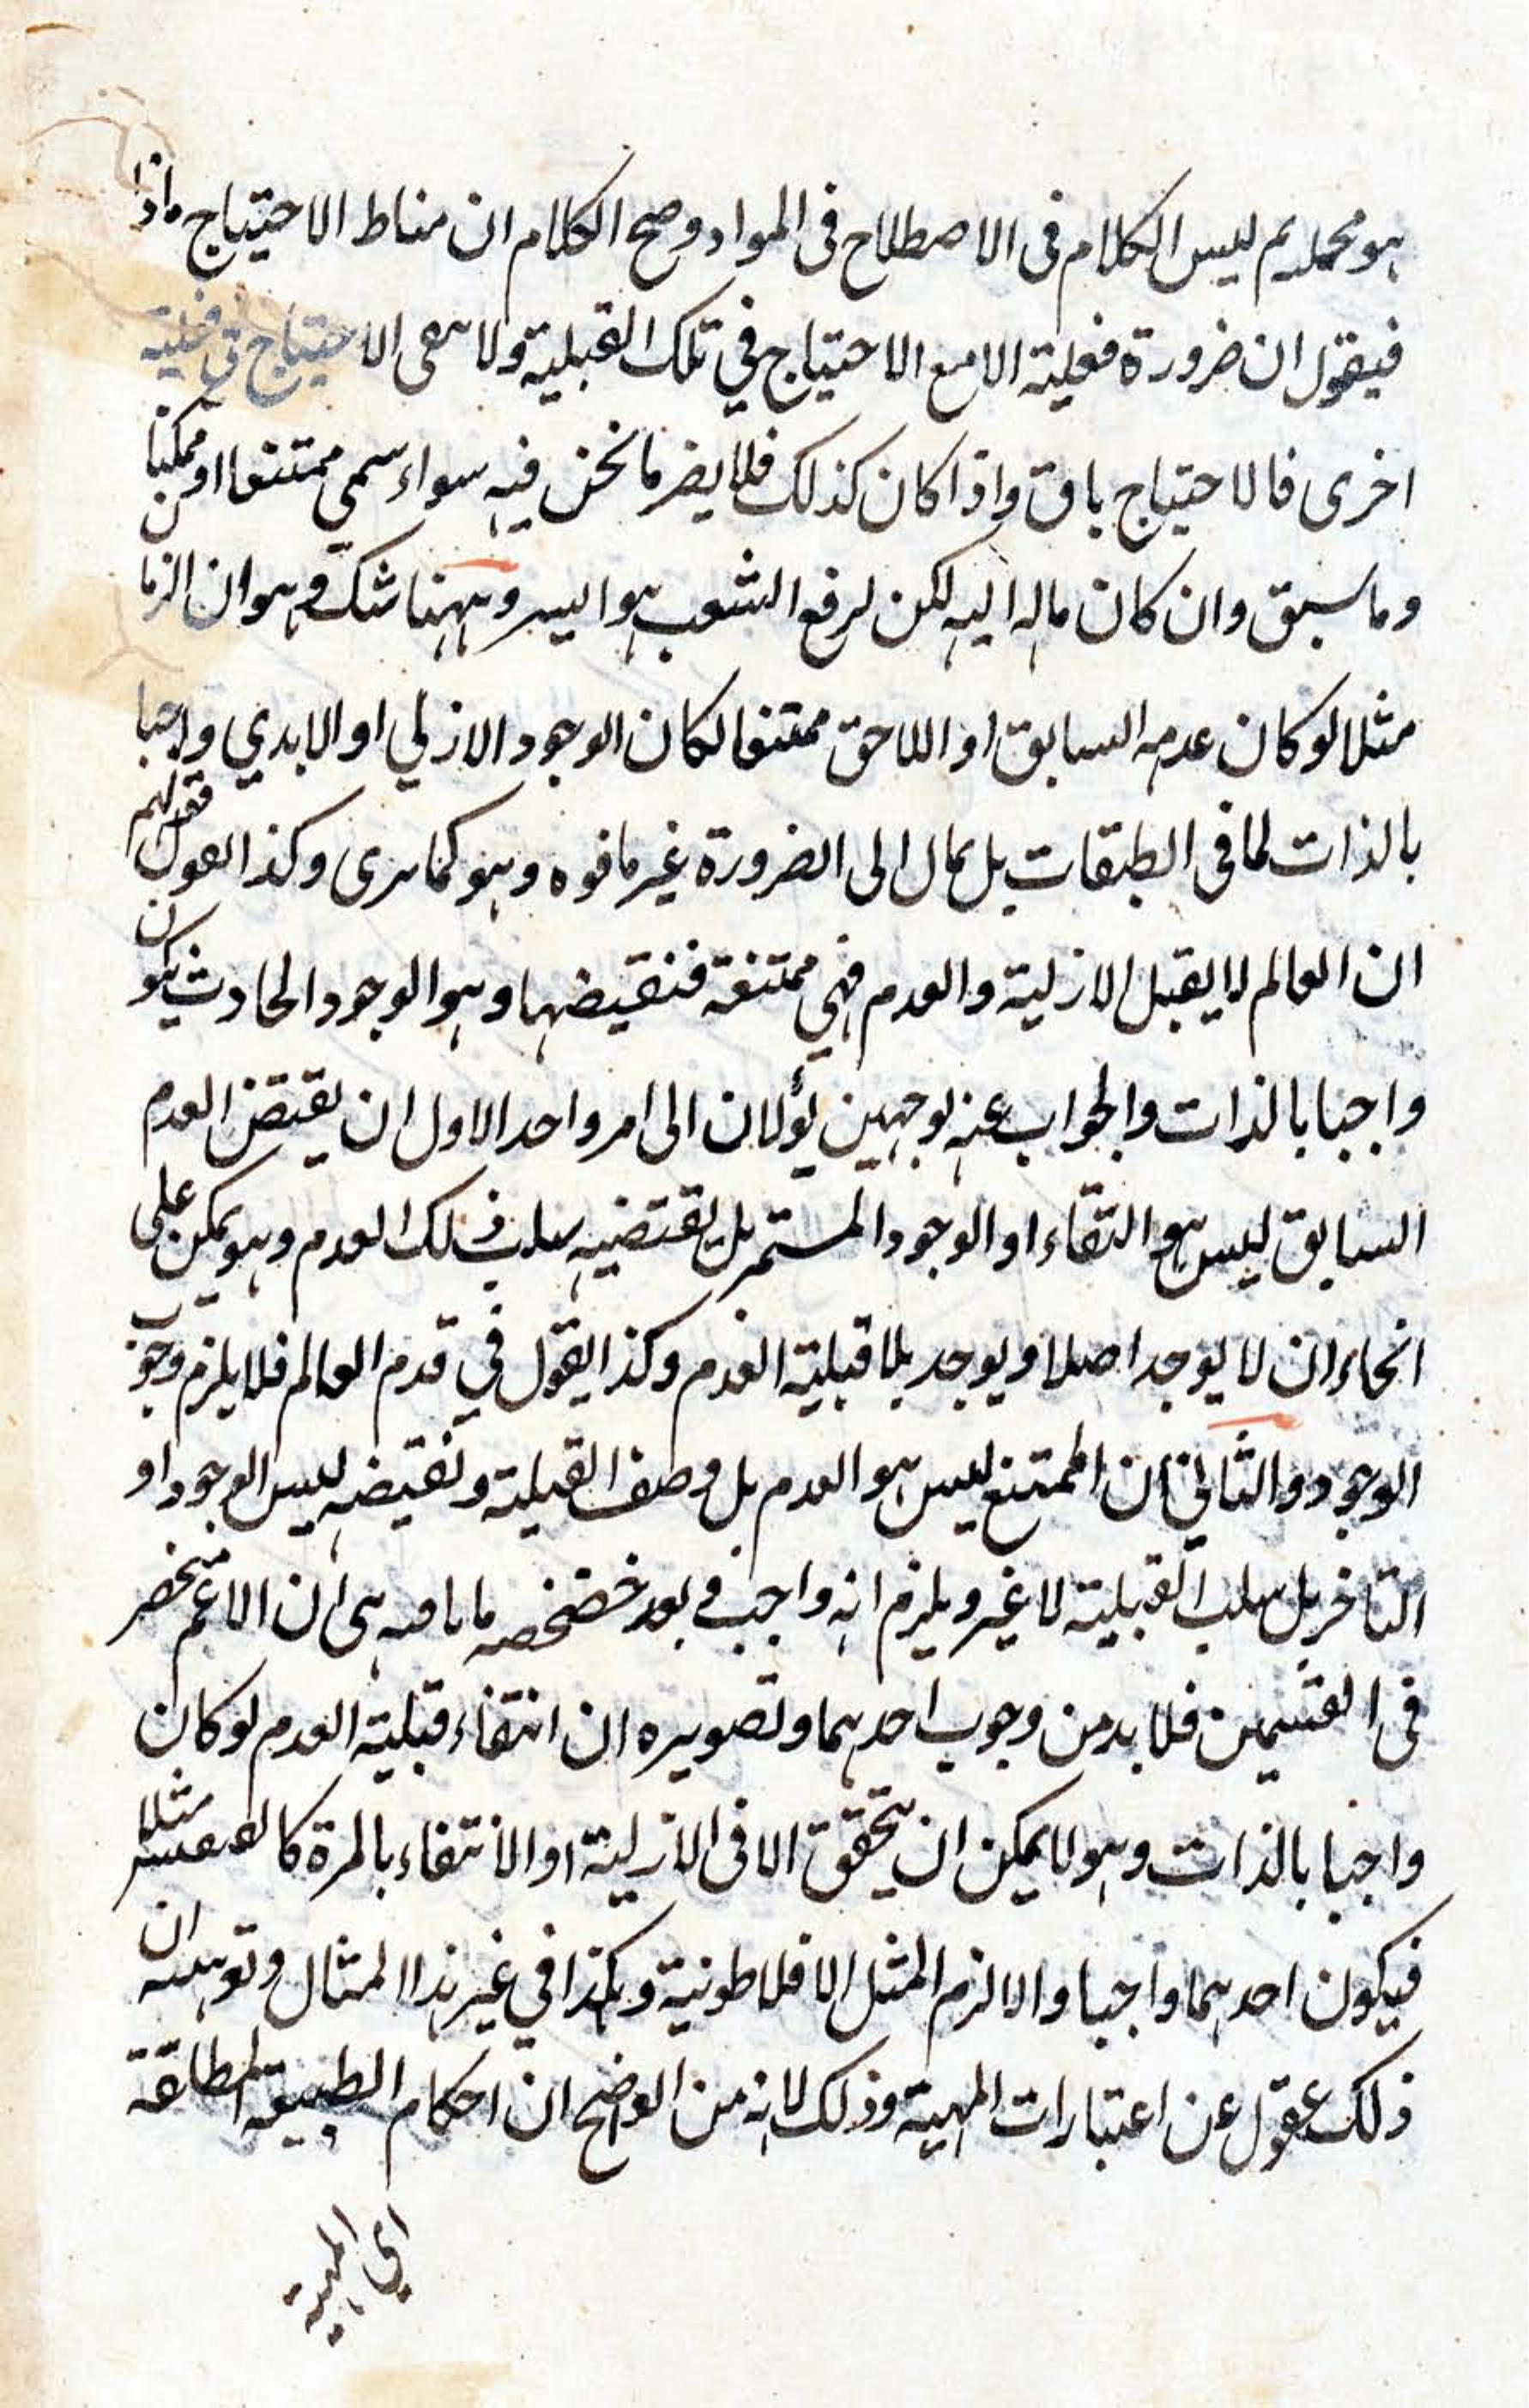 هو محمله ثم ليس الكلام فى الاصطلاح فى المواد وصح الكلام ان مناط الاحتياج ماذا
فيقول ان ضرورة فعلية الا مع الاحتياج في تلك القبلية ولا الاحتياج في قبلية
اخرى فالاحتياج باق واذا كان كذلك فلا يضر ما نحن فيه سواء سمي ممتنعا او ممكنا
وما سبق وان كان ماله اليه لكن لرفع الشعب هو اليسر وههنا شك وهو ان الزمان
مثلا لو كان عدمه السابق او اللاحق ممتنعا لكان الوجود الازلي او الابدي واجبا
بالذات لما فى الطبقات بل مال الى الضرورة غير ما فوه وهو كما ترى وكذا القول فقولهم
ان العالم لا يقبل الازلية والعدم فهي ممتنعة فنقيضها وهو الوجود الحادث يكون
واجبا بالذات والجواب عنه بوجهين يؤلان الى امر واحد الاول ان نقيض العدم
السابق ليس هو البقاء او الوجود المستمر بل نقيضه سلب ذلك العدم وهو يمكن على
انحاء ان لا يوجد اصلا ويوجد بلا قبلية العدم وكذا القول في قدم العالم فلا يلزم وجوب
الوجود والثاني ان الممتنع ليس هو العدم بل وصف القبلية ونقيضه ليس الوجود او
التاخر بل سلب القبلية لا غير ويلزم انه واجب في بعد خصخصه ما هى ان الاعم منحصر
فى القسمين فلا بد من وجوب احدهما وتصويره ان انتفاء قبلية العدم لو كان
واجبا بالذات وهو لا يمكن ان يتحقق الا فى الازلية او الانتفاء بالمرة مثلا
فيكون احدهما واجبا والا لزم المثل الافلاطونية وهكذا في غير هذا المثال وتوهينه ان
ذلك عقول عن اعتبارات المهية وذلك لانه من الواضح ان احكام الطبيعة المطلقة
اي المهية